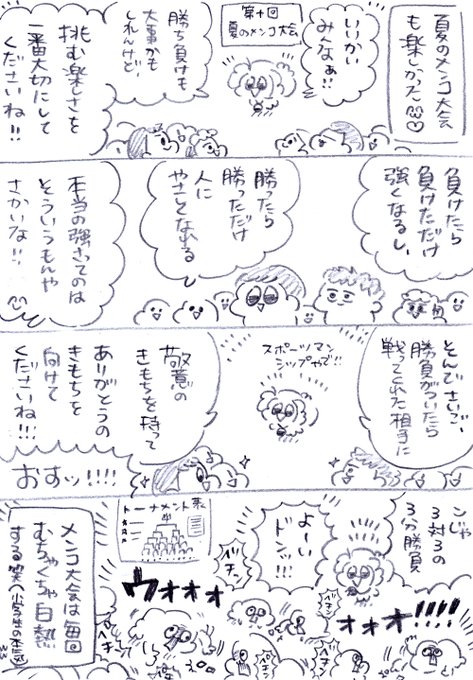 夏のメンコ大会
も楽しかった♡
いいかい
みんなぁ!!
第十回
夏のメンコ大会
勝ち負けも
大事かも
しれんけど、
挑む楽しさを
一番大切にして
くださいね!!
負けたら
負けただけ
強くなるし、
勝ったら
勝っただけ
人に
やさしくなれる
本当の強さってのは
そういうもんや
さかいな!!
そんでさいご、
勝負がついたら
戦ってくれた相手に
スポーツマン
シップやで!!
敬意の
きもちを持って
ありがとうの
きもちを
向けて
くださいね!!!
おすッ!!!!
こじゃ
3対3の
3分勝負
よーい
ドンッ!!!
トーナメント表
バチン
ウオオオ
オオオ!!!!
バチン
ペチン
メンコ大会は毎回
むちゃくちゃ白熱
する笑(小学生の本気)